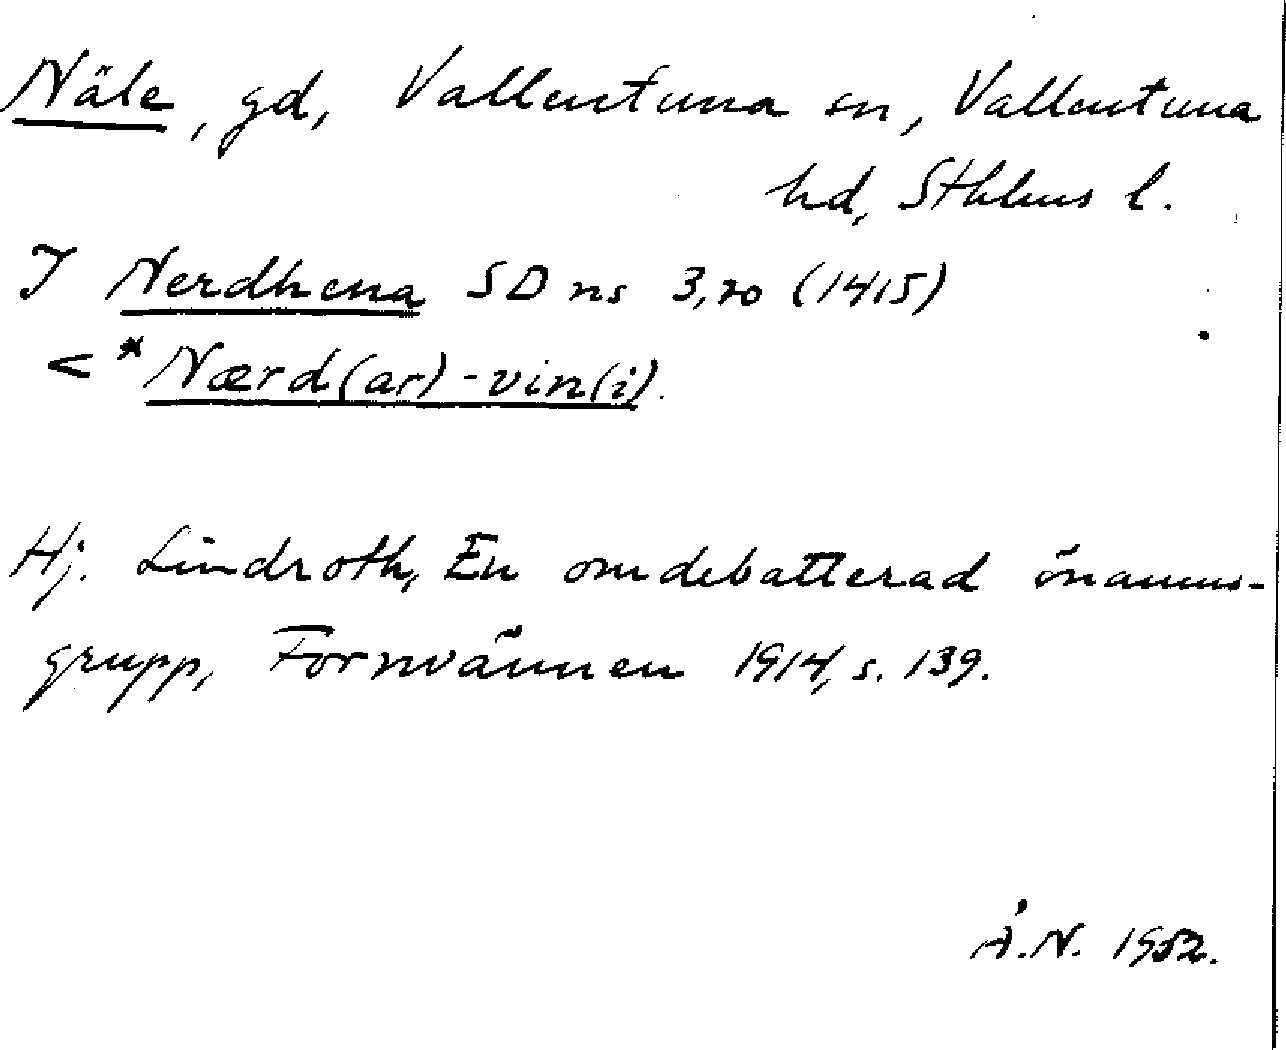 Näle, gd, Vallentuna sn, Vallentuna
hd, Sthlms l.
I Nerdhena SD ns 3,20 (1415)
< *Nærd(ar)-vin(i).
Hj. Lindroth, En omdebatterad önamns-
grupp, Fornvännen 1914, s. 139.
Å.N. 1952.